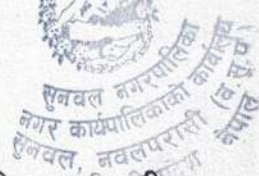 सुनवल नगरपालिका
नगर कार्यपालिकाको कार्यालय
सुनवल, नवलपरासी (व.सु.प)
नेपाल